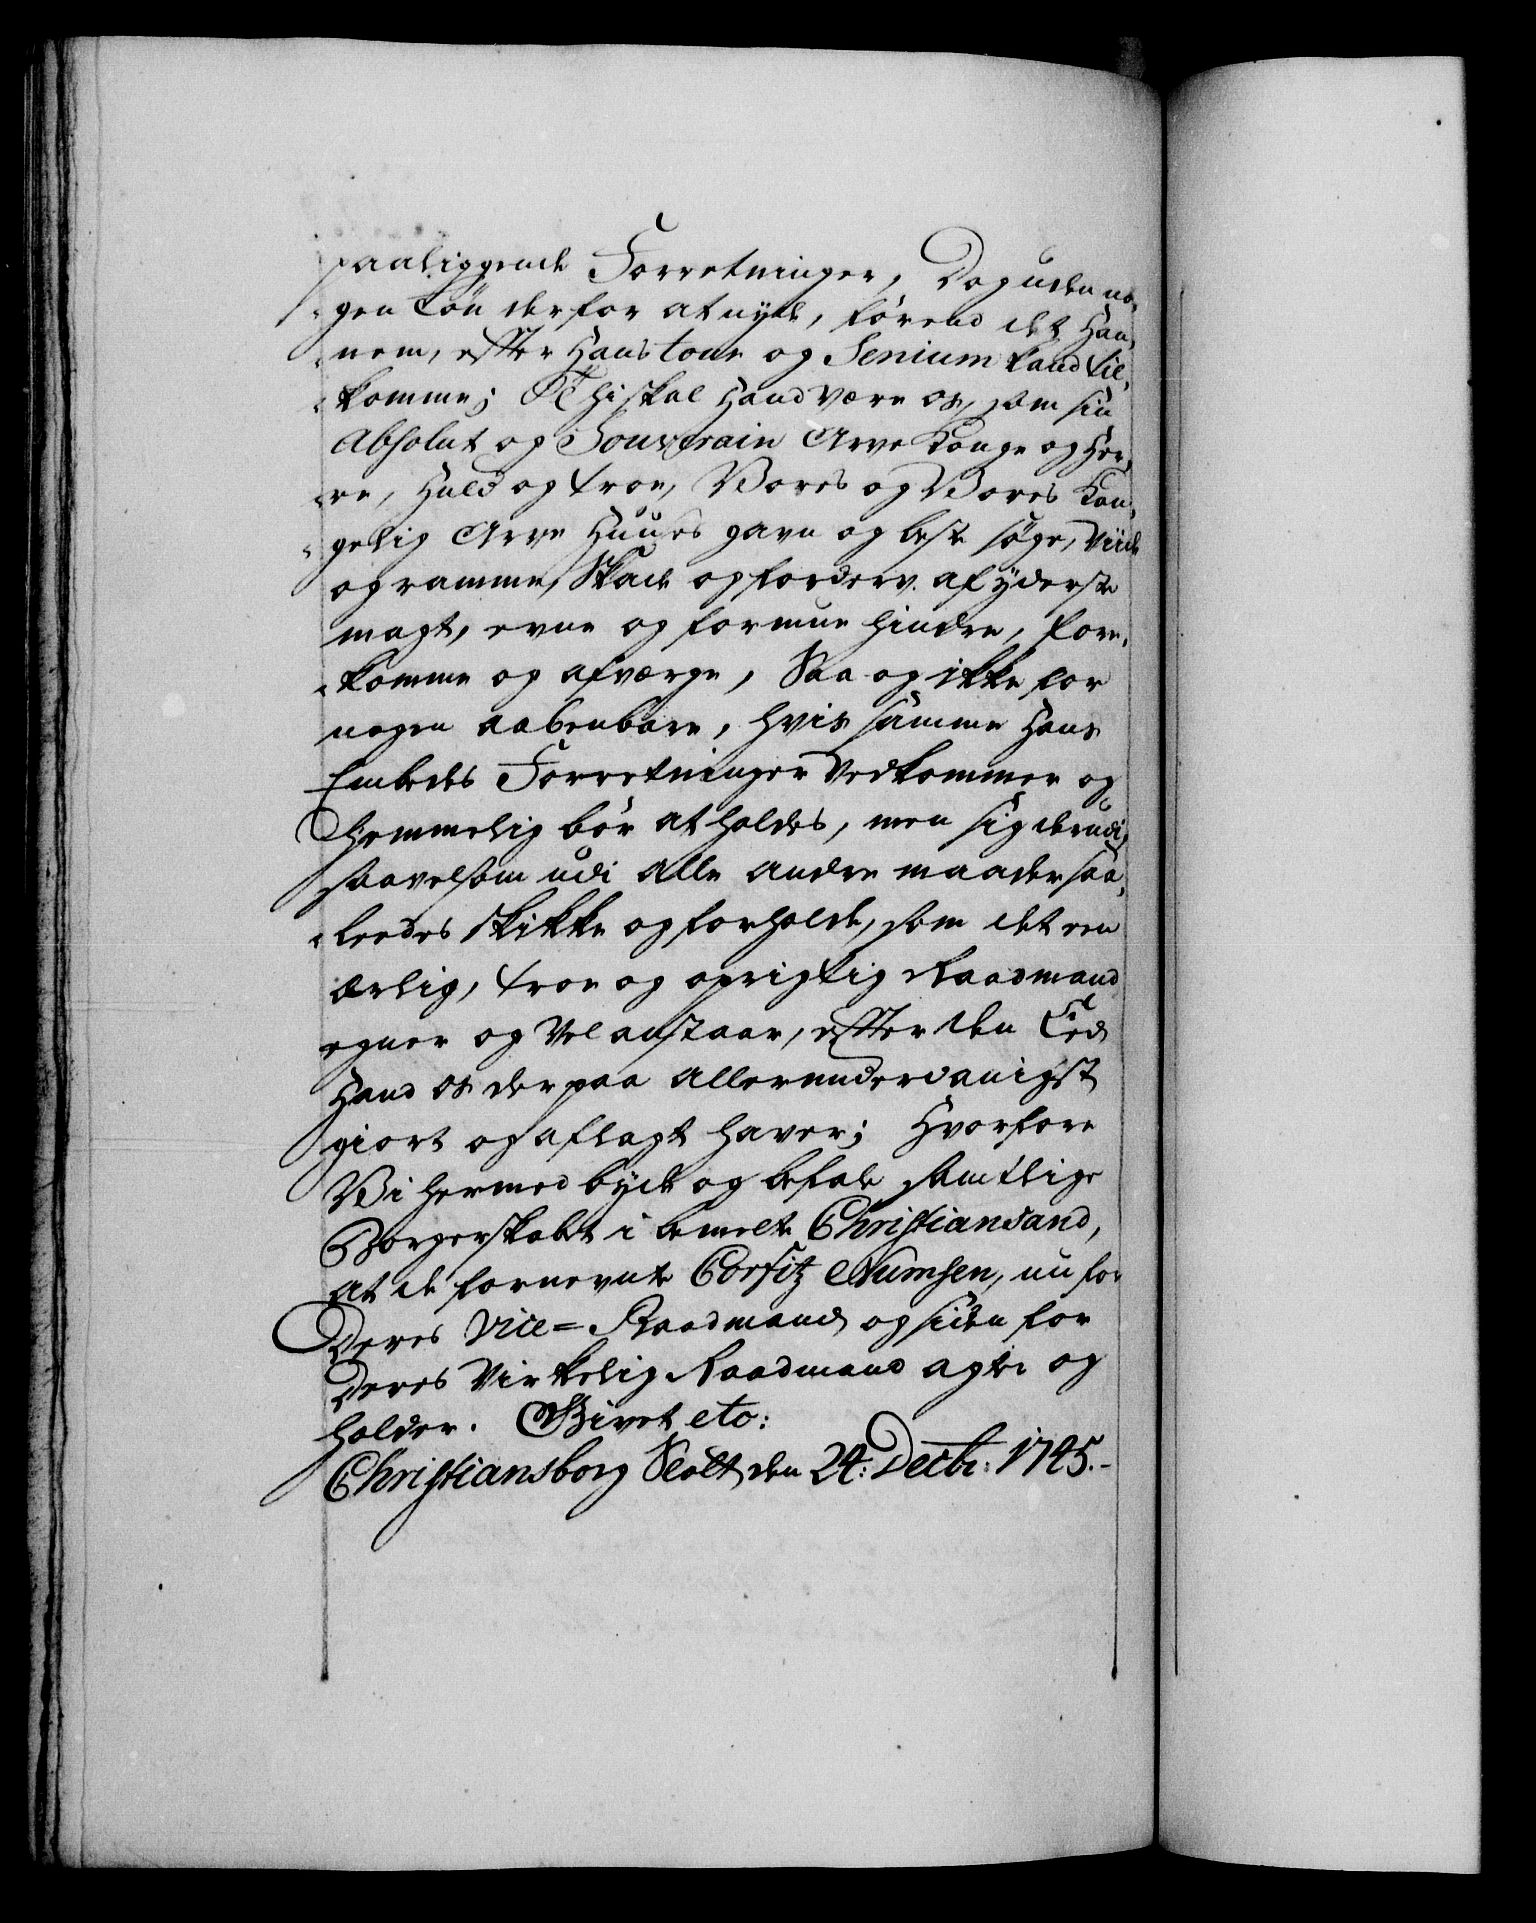 paaliggende Forretninger, Dog uden no¬
gen Løn derfor at nyde, førend det Han¬
nem, efter Hans tour og Senium kand til¬
komme; Thi skal Hand være os, som sin
Absolut og Souverain Arve Konge og Her¬
re, Huld og troe, Vores og Vores Kon¬
gelig Arve Huuses gavn og beste søge, Viide
og ramme, Skade og forderv af yderste
magt, evne og formue hindre, fore¬
komme og afværge, Saa og ikke for
nogen aabenbare, hvis samme Hans
Embedes Forretninger Vedkommer og
Hemmelig bør at holdes, men sig derudi,
saavelsom udi alle andre maader saa¬
ledes skikke og forholde, som det een
ærlig, troe og oprigtig Raadmand
egner og Vel anstaar, efter den Eed
Hand os derpaa allerunderdanigst
giort og aflagt haver; Hvorfore
Vi hermed byde og befale samtlige
Borgerskabet i bemelte Christiansand,
at de fornevnte Corfitz Numsen, nu for
Deres Vice=Raadmand og siden for
Deres Virkelig Raadmand agte og
holder. Givet etc:
Christiansborg Slott den 24: Decbr: 1745.-